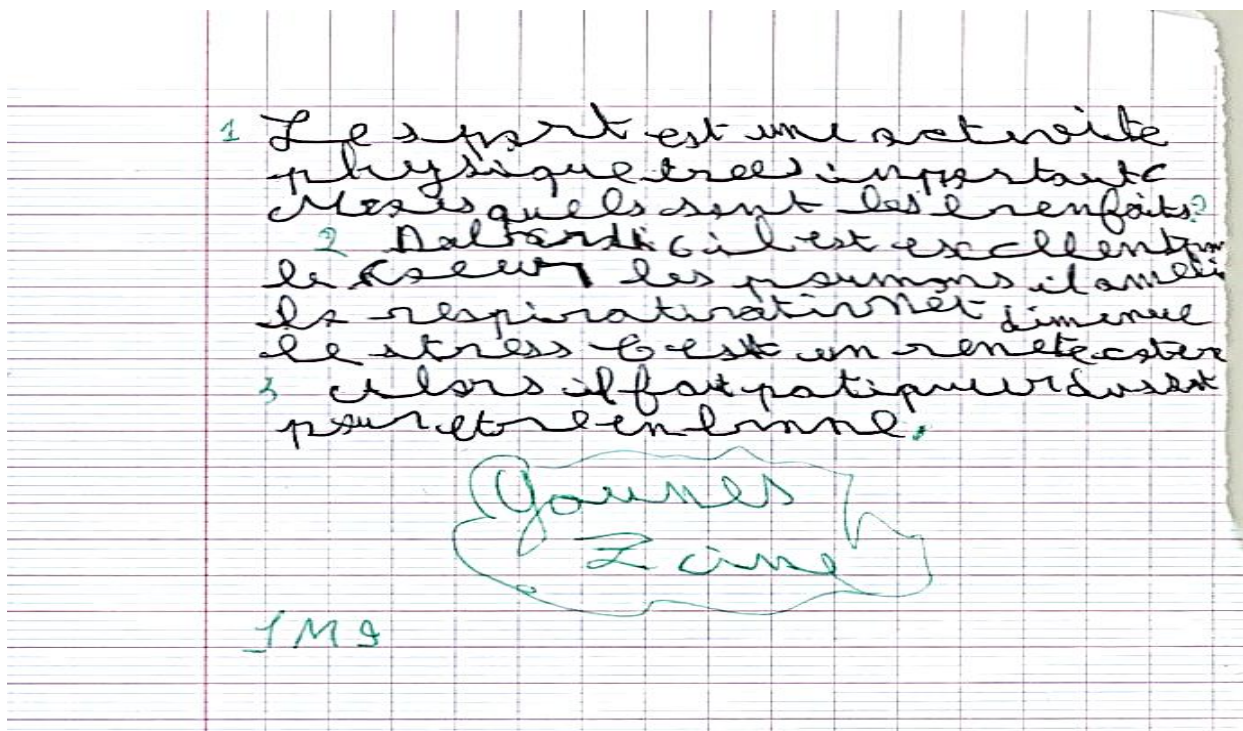 1 Le sport est une activite
physique tres importante
Mais quels sont les bienfaits?
2 Dabord il est excellent pour
le coeur les poumons il ameli
la respiratiration et dimenue
le stress C'est un
3 alors il faut patiquer du sport
pour etre en bonne.
Younes
Zine
1M9